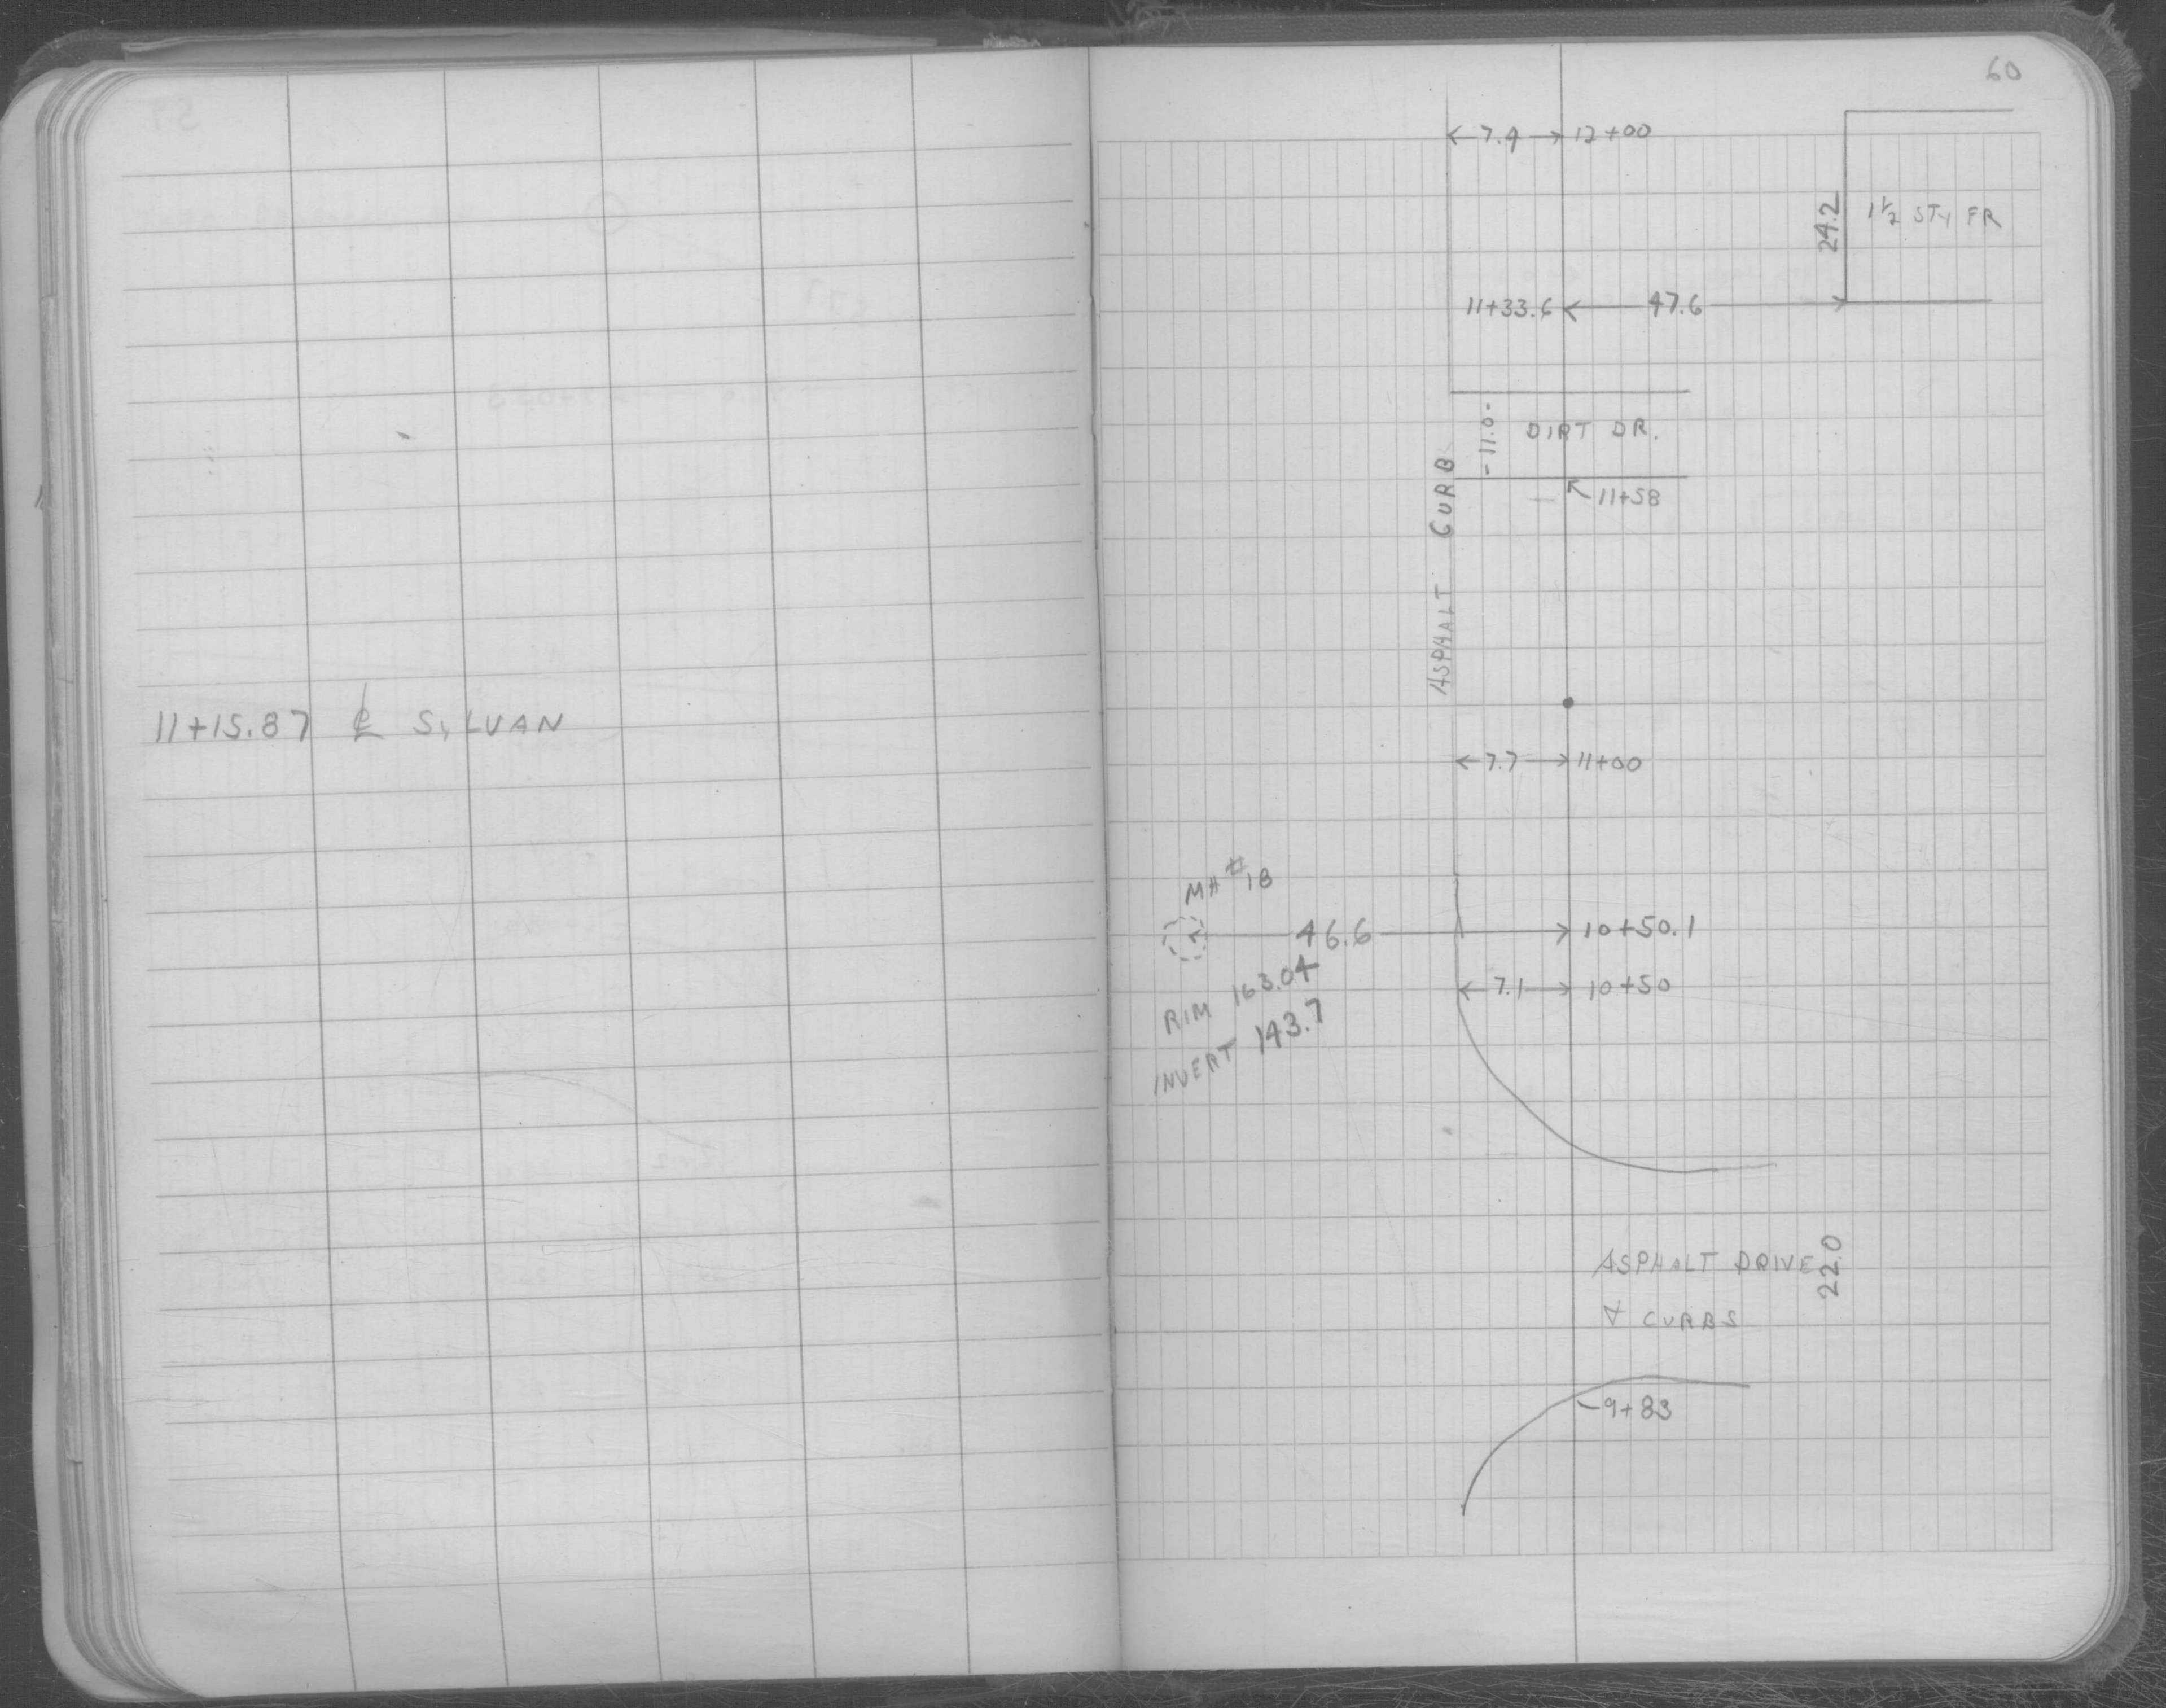 60
7.4 12+00
24.2
1½ STY FR
11+33.6 47.6
-11.0-
DIRT DR.
11+58
ASPHALT CURB
11+15.87 ℄ SYLVAN
7.7 11+00
MH #18
46.6 10+50.1
RIM 163.04
7.1 10+50
INVERT 143.7
ASPHALT DRIVE
& CURBS
22.0
9+83